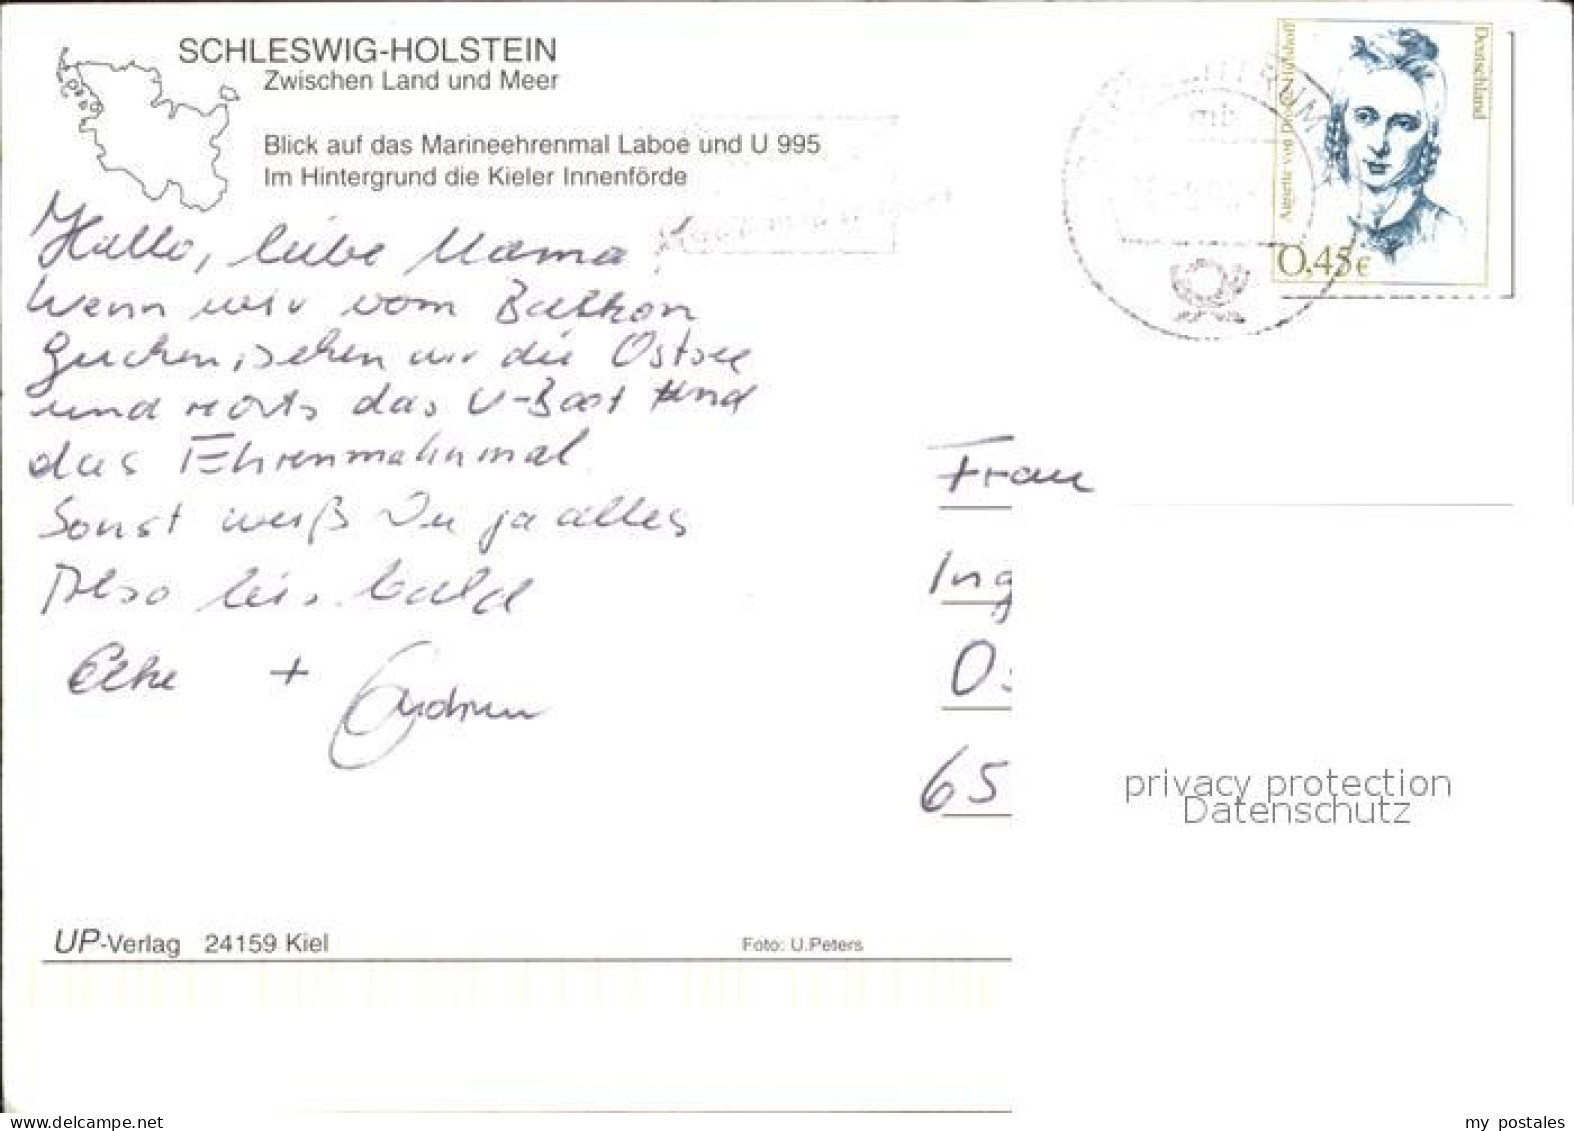 SCHLESWIG-HOLSTEIN
Zwischen Land und Meer
Blick auf das Marineehrenmal Laboe und U 995
Im Hintergrund die Kieler Innenförde
Hallo, liebe Mama!
Wenn wir vom Balkon
gucken, sehen wir die Ostsee
und rechts das U-Boot und
das Ehrenmahnmal
Sonst weißt Du ja alles
Also bis bald
Elke + Gudrun
Deutschland
Annette von Droste-Hülshoff
0,45€
Frau
Ing
Os
65
privacy protection
Datenschutz
UP-Verlag 24159 Kiel
Foto: U.Peters
delcampe.net
my postales